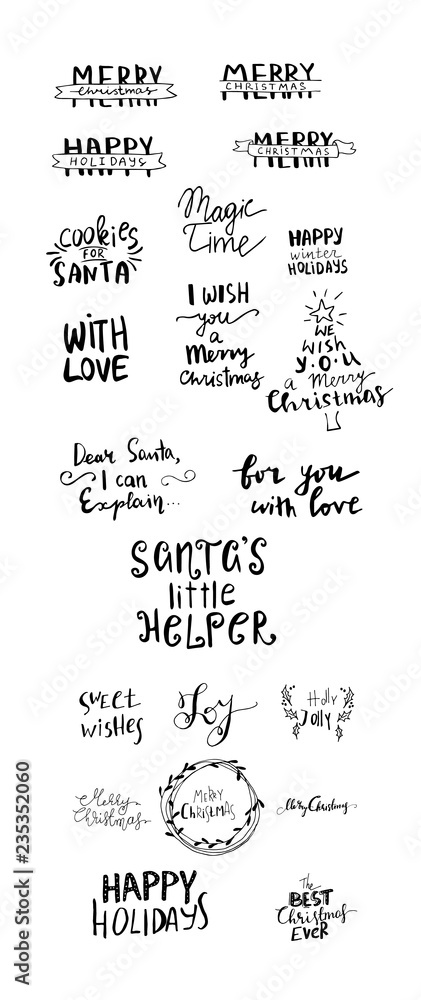 MERRY
Christmas
MERRY
CHRISTMAS
HAPPY
HOLIDAYS
MERRY
CHRISTMAS
Cookies
FOR
SANTA
Magic
Time
HAPPY
winter
HOLIDAYS
WITH
LOVE
I WISH
you
a
Merry
Christmas
WE
WISH
Y.O.U
a Merry
Christmas
Dear Santa,
I can
Explain...
for you
with love
SANTA'S
little
HELPER
SWEET
WISHES
Joy
Holly
Jolly
Merry
Christmas
MERRY
CHRISTMAS
Merry Christmas
HAPPY
HOLIDAYS
The
BEST
Christmas
EVER
Adobe Stock | #235352060